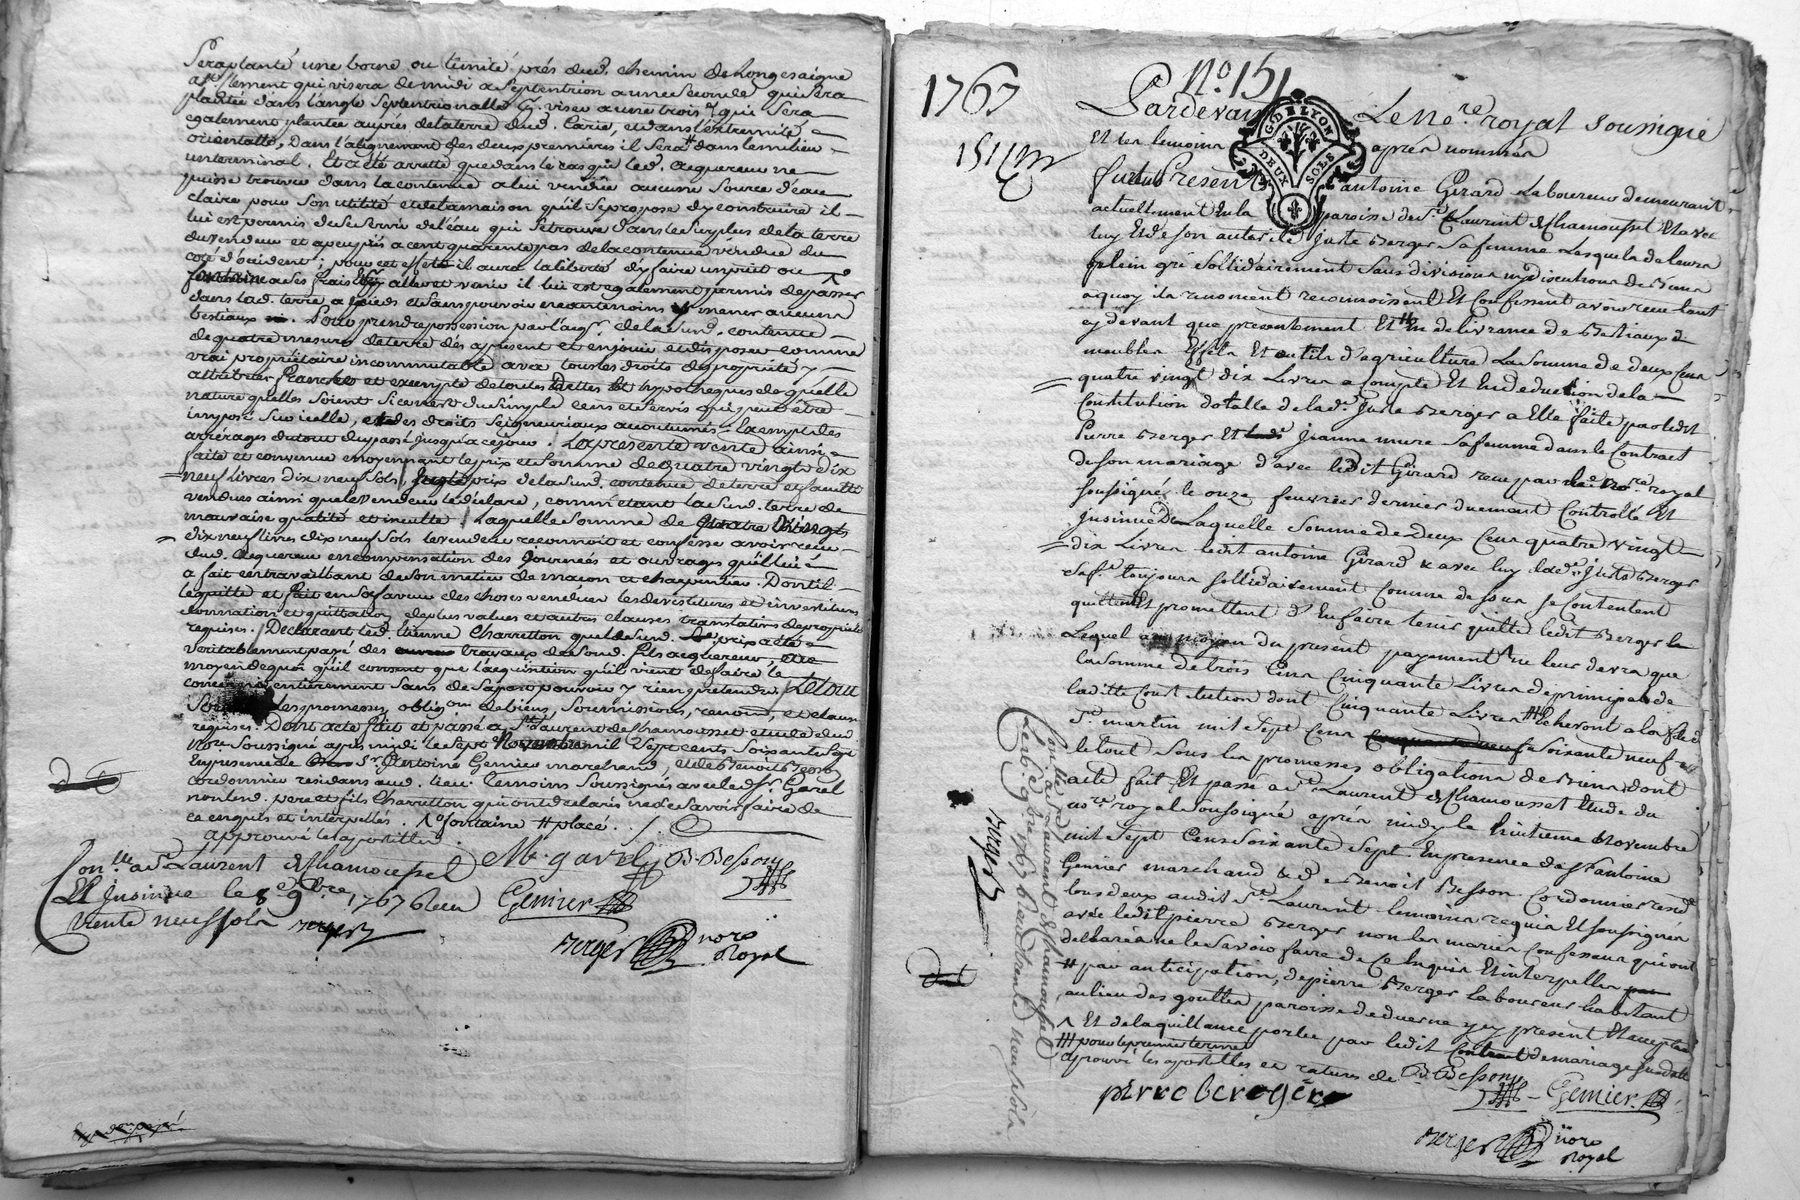 Sera planté une borne ou limite, près dud. chemin de Longesaigne
qui visera de midi a Septentrion a une seconde qui sera
plantée dans l'angle Septentrionalle & visera a une trois.e qui sera
egalement plantée auprès de la terre dud. Carie, et dans l'extremité
orientalle, dans l'alignement des deux premieres il sera dans le milieu
un terminal. Et a été arretté que dans le cas que led. acquereur ne
puisse trouver dans la contenue a lui vendüe aucune Source d'eau
claire pour son utilité et de la maison qu'il se propose d'y construire il
lui est permis de se servir de l'eau qui se trouve dans le surplus de la terre
du vendeur et a peu près a cent quarente pas de la contenue vendue du
coté d'occident; pour cet effet il aura la liberté d'y faire un puit ou
fontaine a ses frais & d'y aller et venir il lui est egalement permis de passer
dans lad. terre a pieds et sans pouvoir neantmoins y mener aucuns
bestiaux. Pour prendre possession par l'acqr. de la sud. contenue
de quatre mesures de terre dès a present et en jouir et disposer comme
vrai proprietaire incommutable avec tous les droits de proprieté y
attribués franche et exempte de toutes Dettes et hypotheques de quelle
nature quelles soient si ce n'est du simple cens et servis qui peut être
imposé sur icelle, et des droits seigneuriaux accoutumés
arrérages du tout du passé jusqu'a ce jour. La presente vente ainsi
faite et convenue moyennant le prix et somme de quatre vingt dix
neuf livres dix neuf sols, juste prix de la sud. contenue de terre
vendues ainsi que le vendeur le declare, comme etant la sud. terre de
mauvaise qualité et inculte laquelle somme de quatre vingts
dix neuf livres dix neuf sols le vendeur reconnoit et confesse avoir reçu
dud. acquereur en compensation des journées et ouvrages qu'il lui
a fait en travaillant de son metier de maçon et charpentier. Dont il
le quitte et fait en sa faveur des choses vendües les devestitures et investitures
donnation et quittation des plus values et autres clauses translatives de proprieté
requises. Declarant led. Etienne Charretton que le sud. prix a été
veritablement payé des travaux du sud. fils acquereur,
moyen de quoi qu'il consent que l'acquisition qu'il vient de faire le
concerne entierement sans de sa part pouvoir y rien pretendre, Le tout
Sous les promesses, obligons. de biens, soumissions, renons., et clauses
requises. Dont acte fait et passé a St. Laurent de Chamousset etude du
nore. soussigné apres midi le sept Novembre mil sept cents soixante sept
En presence de sr. Antoine Gemier marchand, et de Benoit Besson
cordonnier residans aud. lieu. Temoins soussignés avec led. sr. Garel
non led. pere et fils Charretton qui ont declarés ne le savoir faire de
ce enquis et interpellés. fontaine # placé.
approuvé les apostilles
Con.lle a St. Laurent de Chamousset
Et Insinué le 8 9bre 1767 Reçu
trente neuf sols Berger
M. garel B. Besson
Gemier
Berger nore
Royal
1767
No. 151
Pardevant Le No.re royal soussigné
G. DE LYON
DEUX SOLS
Et les temoins après nommés
fut Present antoine Girard Laboureur demeurant
actuellement en la paroisse de St. Laurent de Chamousset Et avec
luy Et de son autorité Juste Berger sa femme Lesquels de leurs
plein gré sollidairement sans division ny discution de biens
a quoy ils renoncent reconnoissent Et Confessent avoir reçu tant
cy devant que presentement Et en delivrance de Bestiaux
meubles Effets Et outils d'agriculture La somme de deux Cent
quatre vingt dix Livres a Compte Et En deduction de la
Constitution dotalle de lad. Juste Berger a Elle faite par ledit
Pierre Berger Et Jeanne mure sa femme dans le Contract
de son mariage d'avec ledit Girard reçu par le No.re royal
soussigné le onze feuvrier dernier duement Controllé Et
Insinué De Laquelle somme de Deux Cent quatre vingt
dix Livres ledit antoine Girard & avec luy lad. Juste Berger
sa fe. toujours sollidairement Comme dessus se Contentent
quittent Et promettent d'En faire tenir quitte ledit Berger
Lequel au moyen du present payement ne leur devra que
la somme de trois Cent Cinquante Livres de principal de
laditte Constitution dont Cinquante Livres echeront a la fete de
St. martin mil sept cent soixante neuf
le tout sous les promesses obligations de biens, dont
acte fait Et passé a St. Laurent de Chamousset Etude du
no.re royal soussigné après midy le huitieme Novembre
mil sept Cent soixante sept. En presence de Sr. antoine
Gemier marchand & de Benoit Besson Cordonnier resid.
tous deux audit St. Laurent temoins requis Et soussignés
avec ledit pierre Berger non les mariés Confesseurs qui ont
declarés ne le savoir faire de Ce Enquis Et interpellés
# par anticipation, de pierre Berger laboureur habitant
au lieu des gouttes paroisse de duerne y cy present Et acceptant
Et de la quittance portée par ledit Contract de mariage susdatté
# pour le premier terme
aprouvé les apostilles et ratures de B. Besson
pierre beroger
Gemier
Berger nore
Royal
Con.lle a St. Laurent de Chamousset
le 9 9bre 1767 Reçu trente neuf sols
Berger